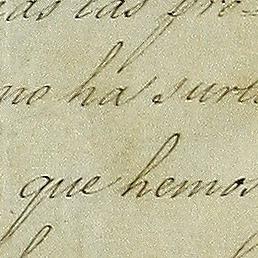 las pro-
no ha surti
que hemos